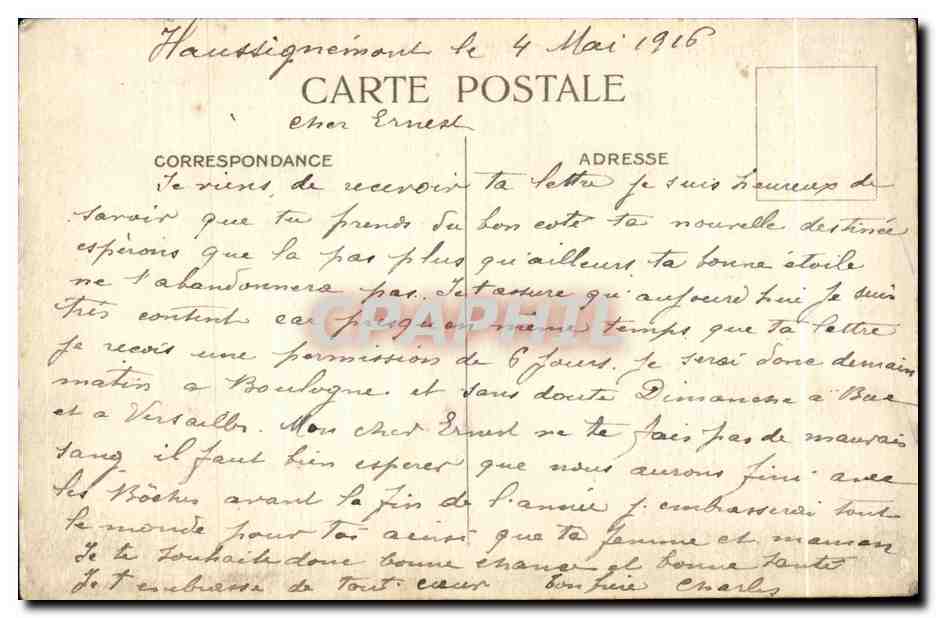 Haussignémont le 4 Mai 1916
CARTE POSTALE
cher Ernest
CORRESPONDANCE
ADRESSE
Je viens de recevoir ta lettre je suis heureux de
savoir que tu prends du bon coté ta nouvelle destinée
espèrons que la pas plus qu'ailleurs ta bonne étoile
ne t'abandonnera pas. Je t'assure qu'aujourd'hui je suis
très content car presqu'en même temps que ta lettre
je recois une permission de 6 jours. je serai donc demain
matin a Boulogne et sans doute Dimanche à Buc
et a Versailles. Mon cher Ernest ne te fais pas de mauvais
sang il faut bien esperer que nous aurons fini avec
les Bôches avant la fin de l'année j'embrasserai tout
le monde pour toi ainsi que ta femme et maman
Je te souhaite donc bonne chance et bonne santé
Je t'embrasse de tout cœur ton frère Charles
CPAPHIL